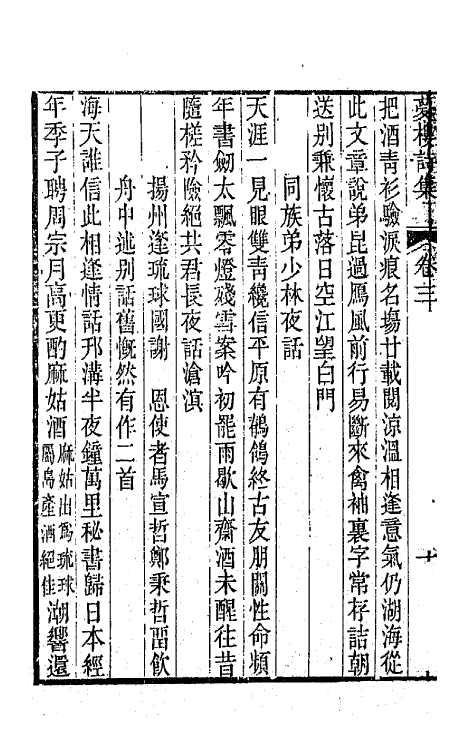 夢樓詩集 卷三 十
把酒青衫驗淚痕名塲廿載閱涼溫相逢意氣仍湖海從
此文章說弟昆過鴈風前行易斷來禽袖裏字常存詰朝
送別乘懷古落日空江望白門
同族弟少林夜話
天涯一見眼雙青纔信平原有鶺鴒終古友朋關性命頻
年書劒太飄零燈殘雪案吟初罷雨歇山齋酒未醒往昔
隨槎矜險絕共君長夜話滄溟
揚州逢琉球國謝 恩使者馬宣哲鄭秉哲畱飲
舟中述別話舊慨然有作二首
海天誰信此相逢情話邗溝半夜鐘萬里秘書歸日本經
年季子聘周宗月高更酌麻姑酒麻姑出爲琉球屬島產酒絕佳潮響還